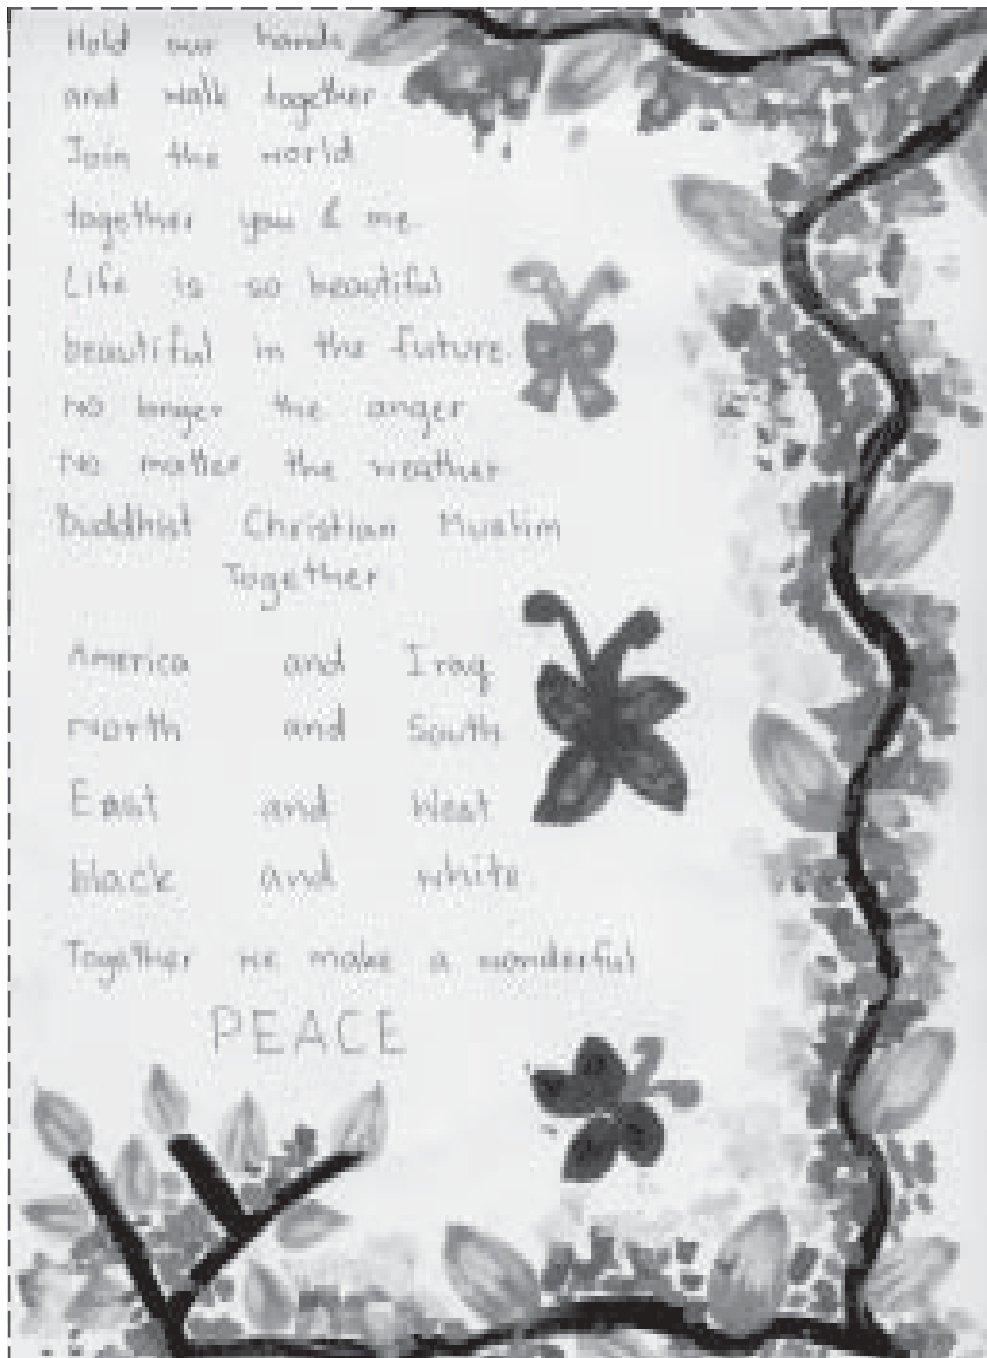 Hold our hands
and walk together
Join the world
together you & me.
Life is so beautiful
beautiful in the future.
no longer the anger
no matter the weather
Buddhist Christian Muslim
Together
America and Iraq
north and South
East and West
black and white.
Together we make a wonderful
PEACE